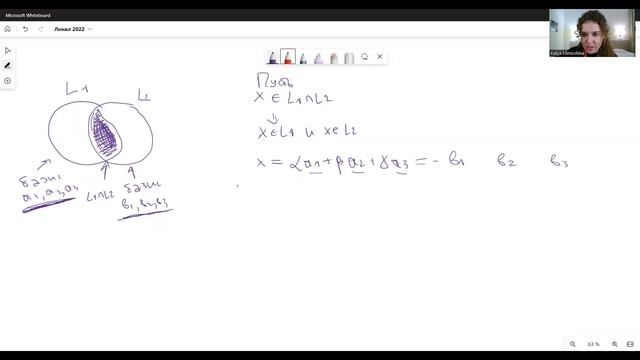 Microsoft Whiteboard
Линал 2022
Katya Filimoshina
L1
L2
базис
a1, a2, a3
L1∩L2
базис
b1, b2, b3
Пусть
x ∈ L1∩L2
⇓
x∈L1 и x∈L2
x = αa1+βa2+γa3 = - b1 b2 b3
63 %